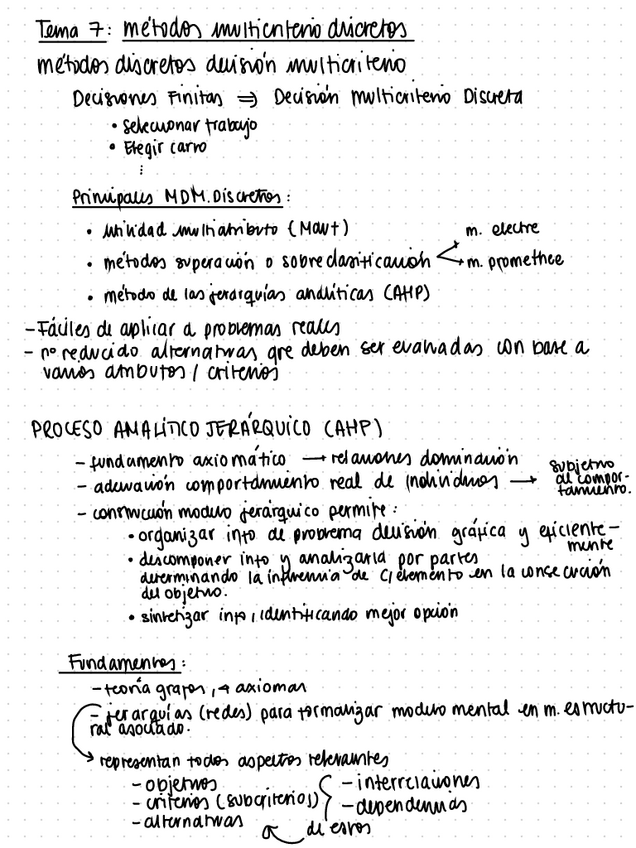 Tema 7: métodos multicriterio discretos
métodos discretos decisión multicriterio
Decisiones Finitas ⇒ Decisión Multicriterio Discreta
• Seleccionar trabajo
• Elegir carro
⋮
Principales MDM. Discretos:
• utilidad multiatributo (MAUT)
• métodos superación o sobreclasificación < m. electre
→ m. promethee
• método de las jerarquías analíticas (AHP)
- Fáciles de aplicar a problemas reales
- nº reducido alternativas que deben ser evaluadas con base a
varios atributos / criterios
PROCESO ANALÍTICO JERÁRQUICO (AHP)
- fundamento axiomático → relaciones dominación
- adecuación comportamiento real de individuos → subjetivo
al compor-
tamiento.
- construcción modelo jerárquico permite:
• organizar info de problema decisión gráfica y eficiente-
mente
• descomponer info y analizarla por partes
determinando la influencia de c/ elemento en la consecución
del objetivo.
• sintetizar info, identificando mejor opción
Fundamentos:
- teoría grafos, 4 axiomas
- jerarquías (redes) para formalizar modelo mental en m. estructu-
ral asociado.
→ representan todos aspectos relevantes
- objetivos
- criterios (subcriterios)
- alternativas
- interrelaciones
- dependencias
de estos